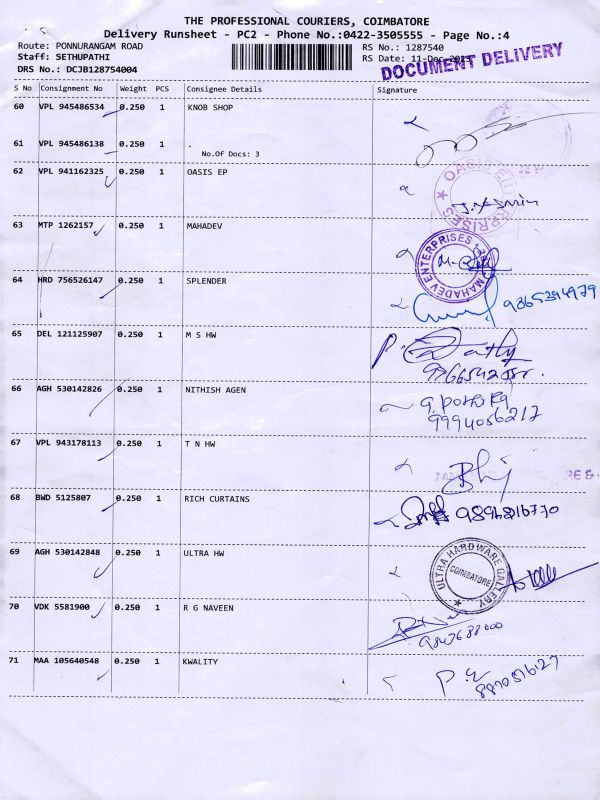 THE PROFESSIONAL COURIERS, COIMBATORE
Delivery Runsheet - PC2 - Phone No.:0422-3505555 - Page No.:4
Route: PONNURANGAM ROAD
RS No.: 1287540
Staff: SETHUPATHI
RS Date: 11-Dec-
DRS No.: DCJB128754004
DOCUMENT DELIVERY
S No Consignment No Weight PCS Consignee Details Signature
60 VPL 945486534 0.250 1 KNOB SHOP
61 VPL 945486138 0.250 1 .
No.Of Docs: 3
62 VPL 941162325 0.250 1 OASIS EP
OASIS ENTERPRISES
63 MTP 1262157 0.250 1 MAHADEV
MAHADEV ENTERPRISES
64 HRD 756526147 0.250 1 SPLENDER
9865394979
65 DEL 121125907 0.250 1 M S HW
66 AGH 530142826 0.250 1 NITHISH AGEN
9994056217
67 VPL 943178113 0.250 1 T N HW
68 BWD 5125807 0.250 1 RICH CURTAINS
69 AGH 530142848 0.250 1 ULTRA HW
ULTRA HARDWARE GALLERY
COIMBATORE
70 VDK 5581900 0.250 1 R G NAVEEN
71 MAA 105640548 0.250 1 KWALITY